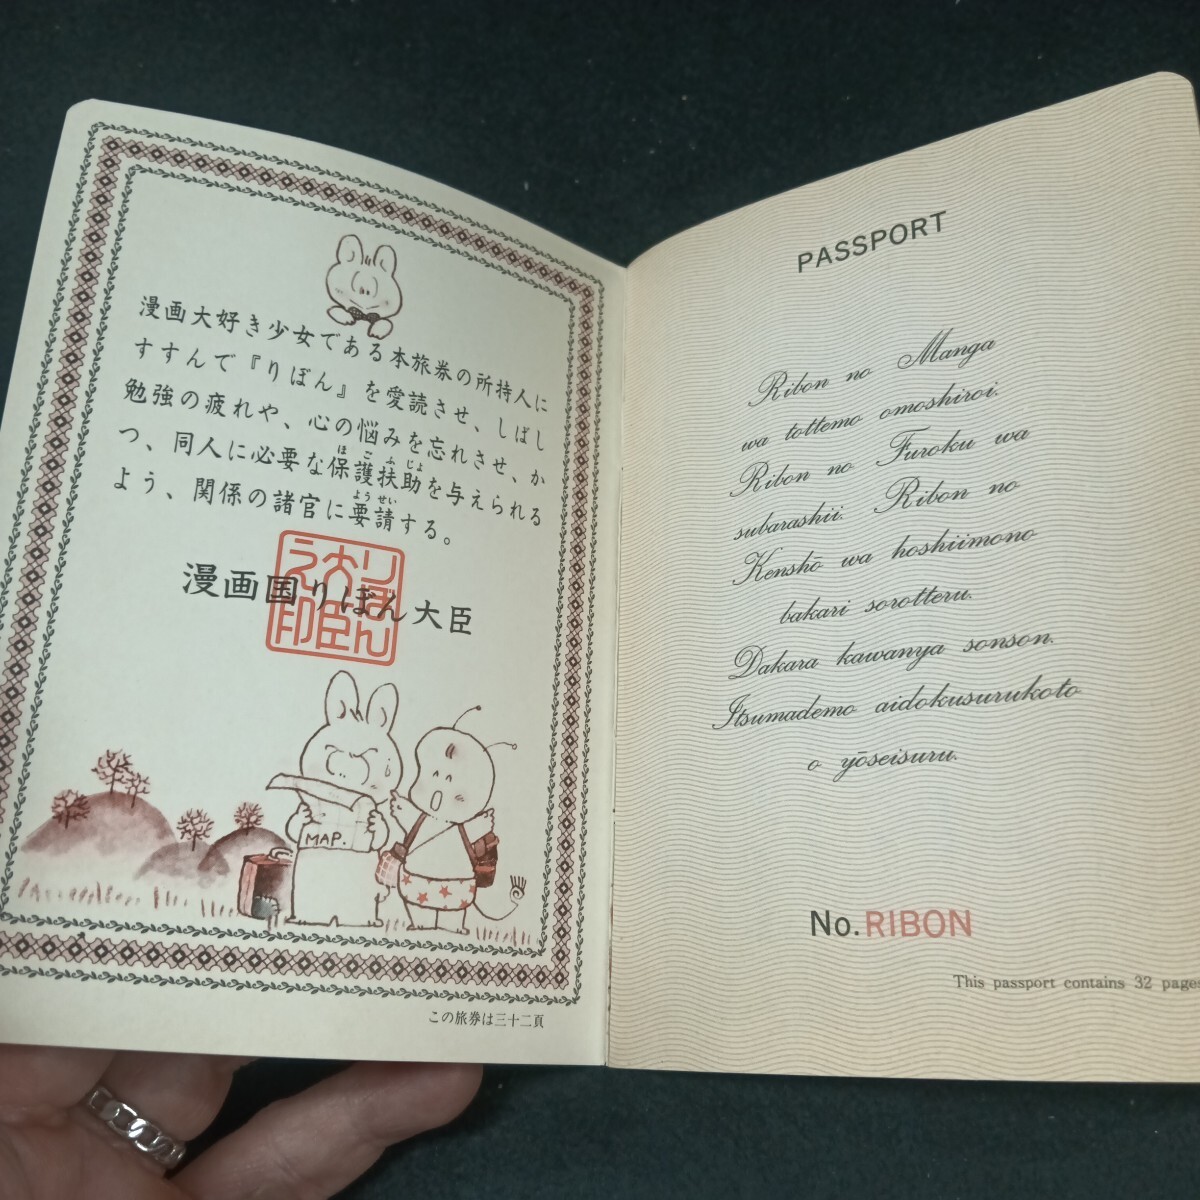 漫画大好き少女である本旅券の所持人に
すすんで『りぼん』を愛読させ、しばし
勉強の疲れや、心の悩みを忘れさせ、か
つ、同人に必要な保護扶助を与えられる
ほごふじょ
よう、関係の諸官に要請する。
ようせい
漫画国りぼん大臣
りぼん大臣之印
MAP.
この旅券は三十二頁
PASSPORT
Ribon no Manga
wa tottemo omoshiroi.
Ribon no Furoku wa
subarashii. Ribon no
Kenshō wa hoshiimono
bakari sorotteru.
Dakara kawanya sonson.
Itsumademo aidokusurukoto
o yōseisuru.
No.RIBON
This passport contains 32 pages